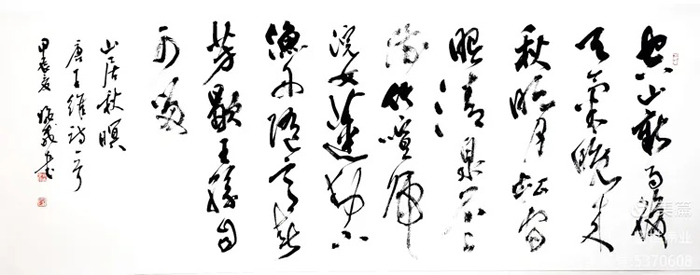 空山新雨後
天氣晚來
秋明月松間
照清泉石上
流竹喧歸
浣女蓮動下
漁舟隨意春
芳歇王孫自
可留
山居秋暝
唐王維詩一首
甲辰夏 書
美篇
5370608